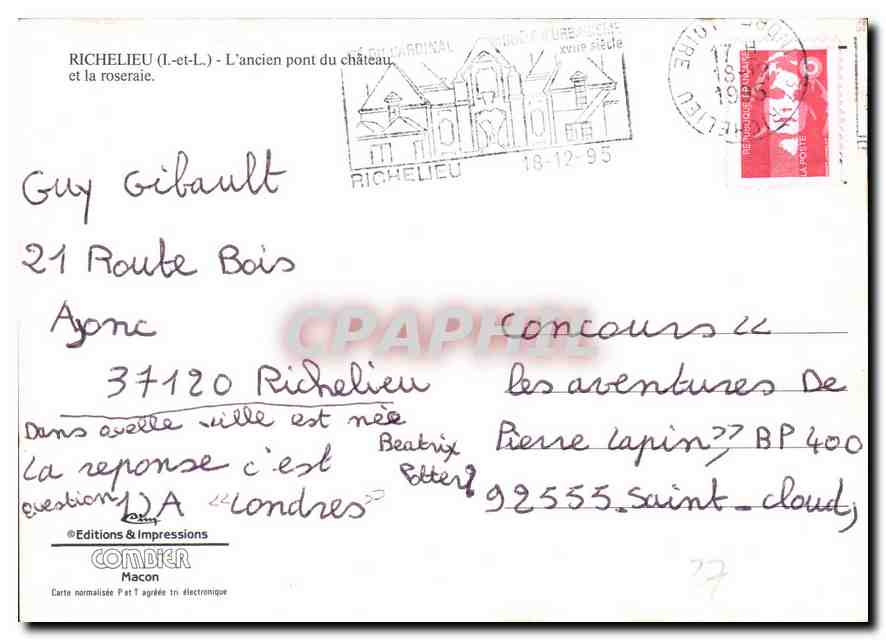 RICHELIEU (I.-et-L.) - L'ancien pont du château
et la roseraie.
XVIIe siècle
RICHELIEU 18-12-95
17 H
18-12
1995
RICHELIEU
REPUBLIQUE FRANÇAISE
LA POSTE
Guy Gibault
21 Route Bois
Ajonc
37120 Richelieu
Dans quelle ville est née
Beatrix
Potter?
La reponse c'est
question 1) A "Londres"
CPAPHIL
Concours <<
les aventures De
Pierre Lapin>>, BP 400
92555 Saint-Cloud,
©Editions & Impressions
COMBIER
Macon
Carte normalisée P et T agréée tri électronique